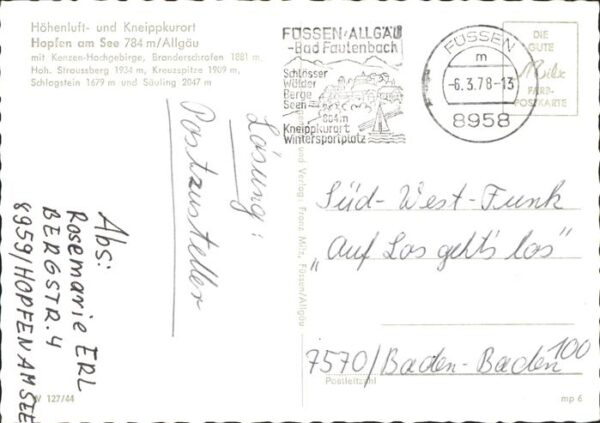 Höhenluft- und Kneippkurort
Hopfen am See 784 m/Allgäu
mit Kenzen-Hochgebirge, Branderschrofen 1881 m,
Hoh. Straussberg 1934 m, Kreuzspitze 1909 m,
Schlagstein 1679 m und Säuling 2047 m
Lösung:
Postzusteller
Abs:
Rosemarie ERL
BERGSTR. 4
8959/HOPFEN AM SEE
127/44
FÜSSEN/ALLGÄU
-Bad Faulenbach
Schlösser
Wälder
Berge
Seen
804m
Kneippkurort
Wintersportplatz
FÜSSEN
m
-6.3.78-13
8958
DIE
GUTE
Milz
FARB-
POSTKARTE
und Verlag: Franz Milz, Füssen/Allgäu
Süd-West-Funk
„Auf Los geht's los"
7570/Baden-Baden 100
Postleitzahl
mp 6